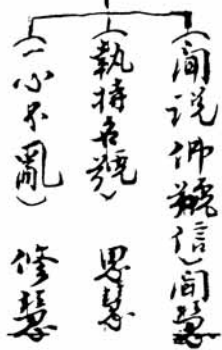 (聞说佛號信)聞慧
(執持名號)思慧
(一心不亂)修慧